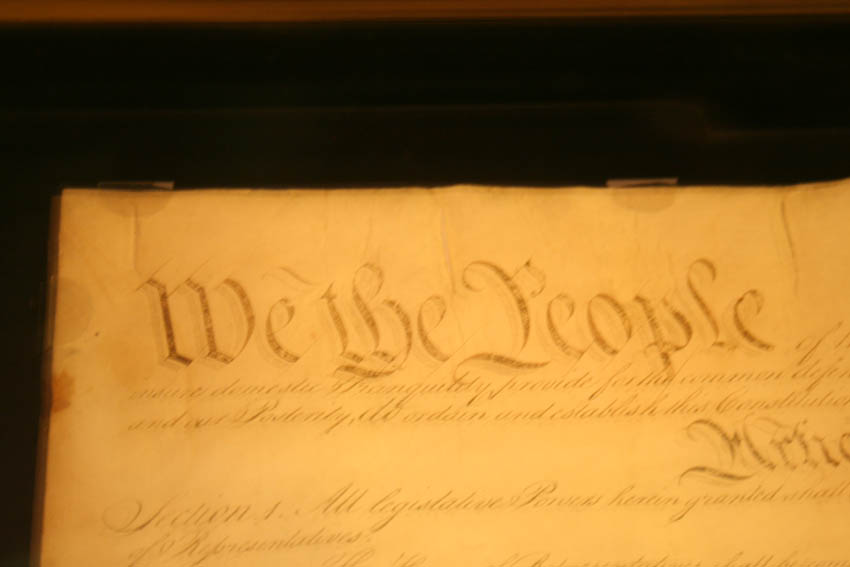 We the People of the
insure domestic Tranquility, provide for the common defen
and our Posterity, do ordain and establish this Constitution
Artic
Section 1. All legislative Powers herein granted shall
of Representatives.